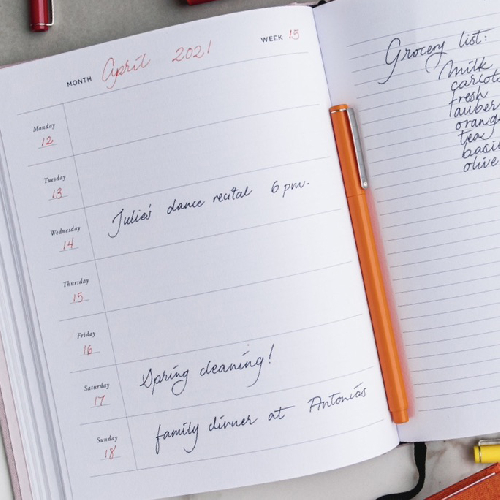 MONTH April 2021 WEEK 15
Monday
12
Tuesday
13
Wednesday
14
Julie's dance recital 6 pm.
Thursday
15
Friday
16
Saturday
17
Spring cleaning!
Sunday
18
family dinner at Antonia's
Grocery list:
milk
fresh
tea
olive